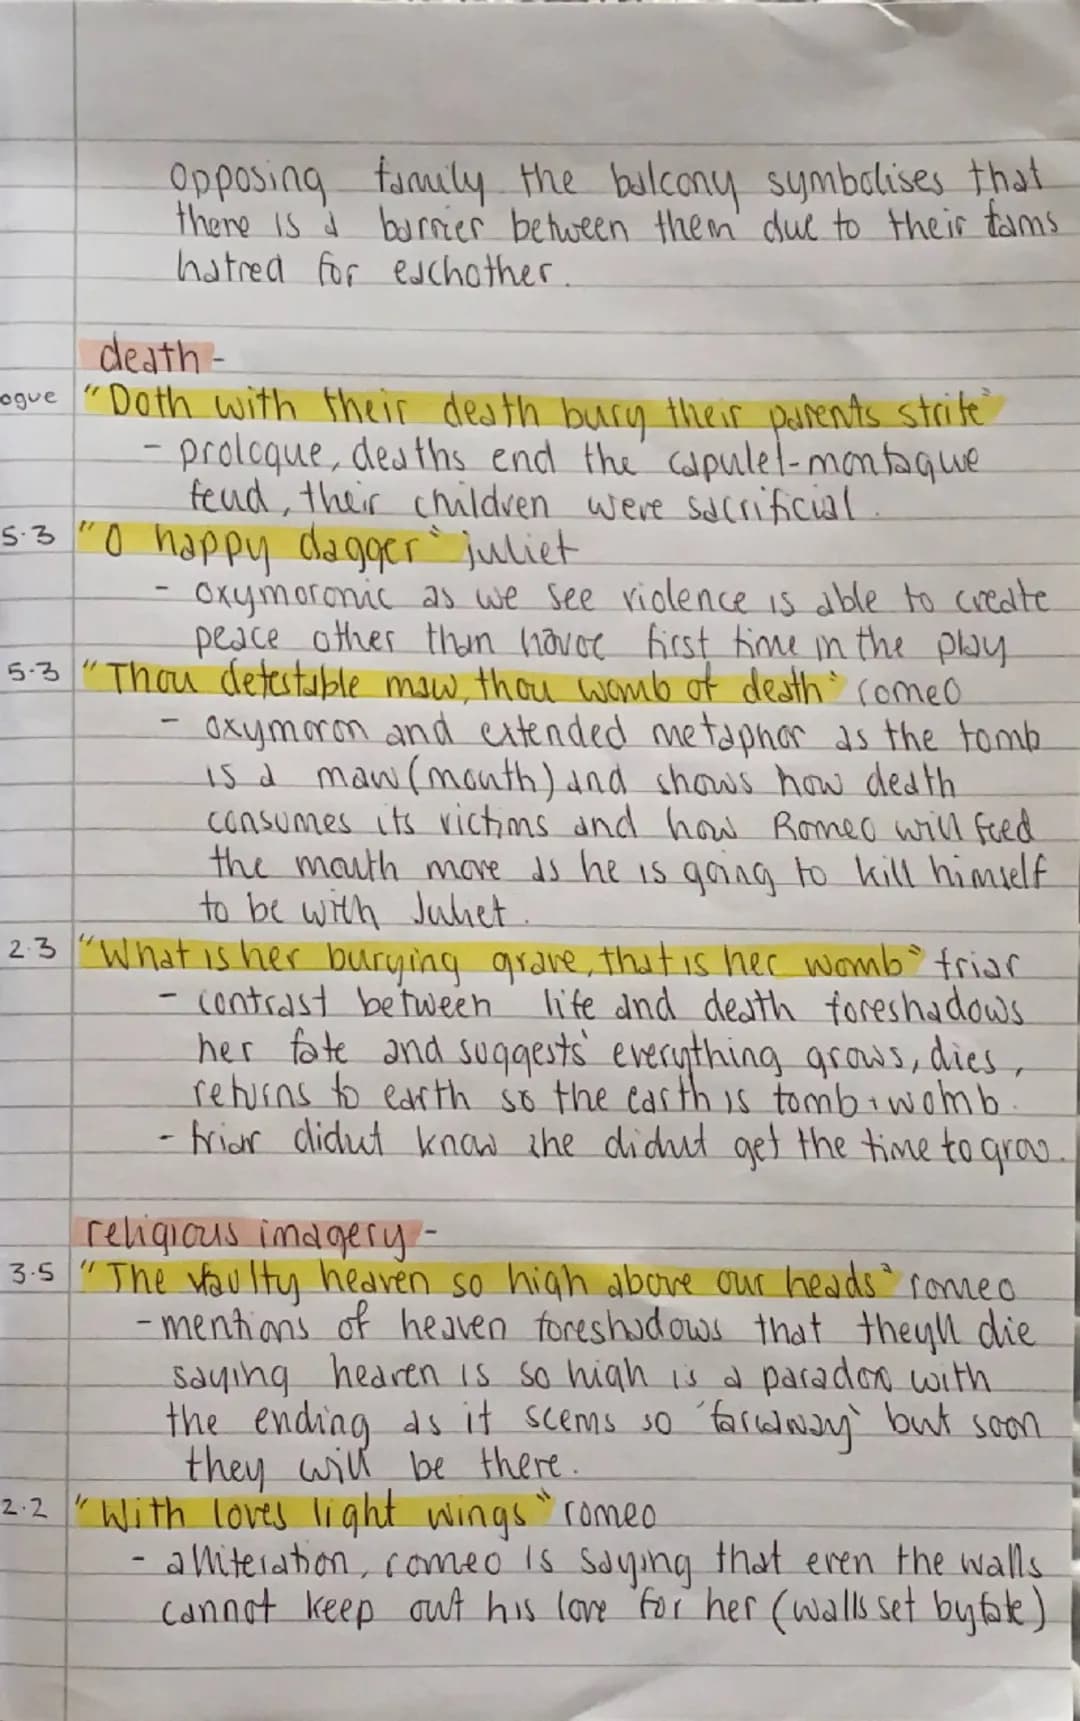 opposing family the balcony symbolises that
there is a barrier between them due to their fams
hatred for eachother.
death -
ogue "Doth with their death bury their parents strife"
- prologue, deaths end the capulet-montague
feud, their children were sacrificial.
5.3 "O happy dagger" juliet
- oxymoronic as we see violence is able to create
peace other than havoc first time in the play
5.3 "Thou detestable maw, thou womb of death" romeo
- oxymoron and extended metaphor as the tomb
is a maw (mouth) and shows how death
consumes its victims and how Romeo will feed
the mouth more as he is going to kill himself
to be with Juliet.
2.3 "What is her burying grave, that is her womb" friar
- contrast between life and death foreshadows
her fate and suggests everything grows, dies,
returns to earth so the earth is tomb + womb.
- friar didnt know she didnt get the time to grow.
religious imagery -
3.5 "The vaulty heaven so high above our heads" romeo
- mentions of heaven foreshadows that theyll die
saying heaven is so high is a paradox with
the ending as it seems so 'faraway' but soon
they will be there.
2.2 "With loves light wings" romeo
- alliteration, romeo is saying that even the walls
cannot keep out his love for her (walls set by fate)